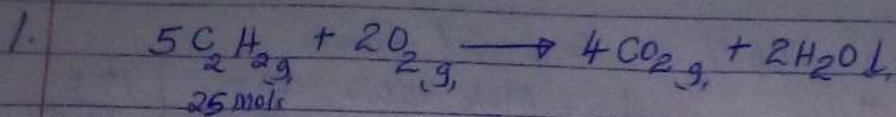 1. 5C₂H₂g, + 2O₂,g, ⟶ 4CO₂g, + 2H₂O l,
25 mols